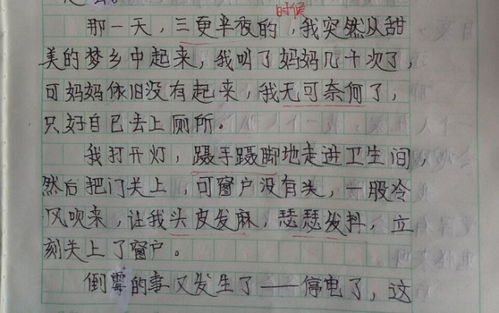 时候
那一天，三更半夜的，我突然从甜
美的梦乡中起来，我叫了妈妈几十次了，
可妈妈依旧没有起来，我无可奈何了，
只好自己去上厕所。
我打开灯，蹑手蹑脚地走进卫生间，
然后把门关上，可窗户没有关，一股冷
风吹来，让我头皮发麻，瑟瑟发抖，立
刻关上了窗户。
倒霉的事又发生了——停电了，这